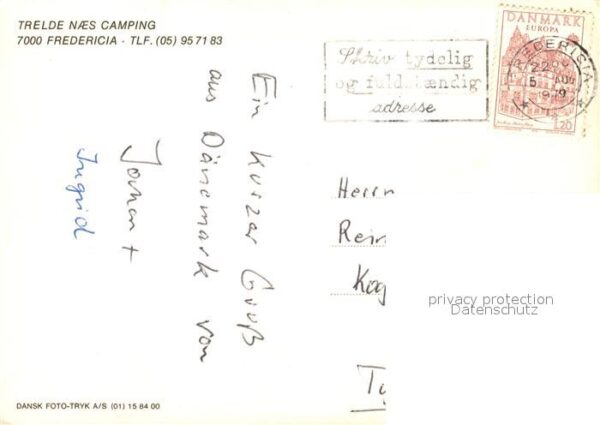 TRELDE NÆS CAMPING
7000 FREDERICIA - TLF. (05) 95 71 83
Skriv tydelig
og fuldstændig
adresse
DANMARK
EUROPA
FREDERICIA
120
Ein kurzer Gruß
aus Dänemark von
Johan +
Ingrid
Herrn
Rein
Kog
privacy protection
Datenschutz
DANSK FOTO-TRYK A/S (01) 15 84 00